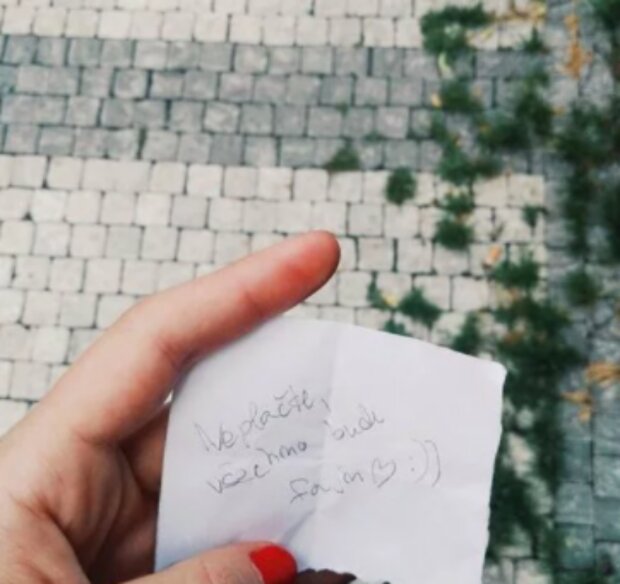 Neplačte,
všechno bude
fajn ♡ :))